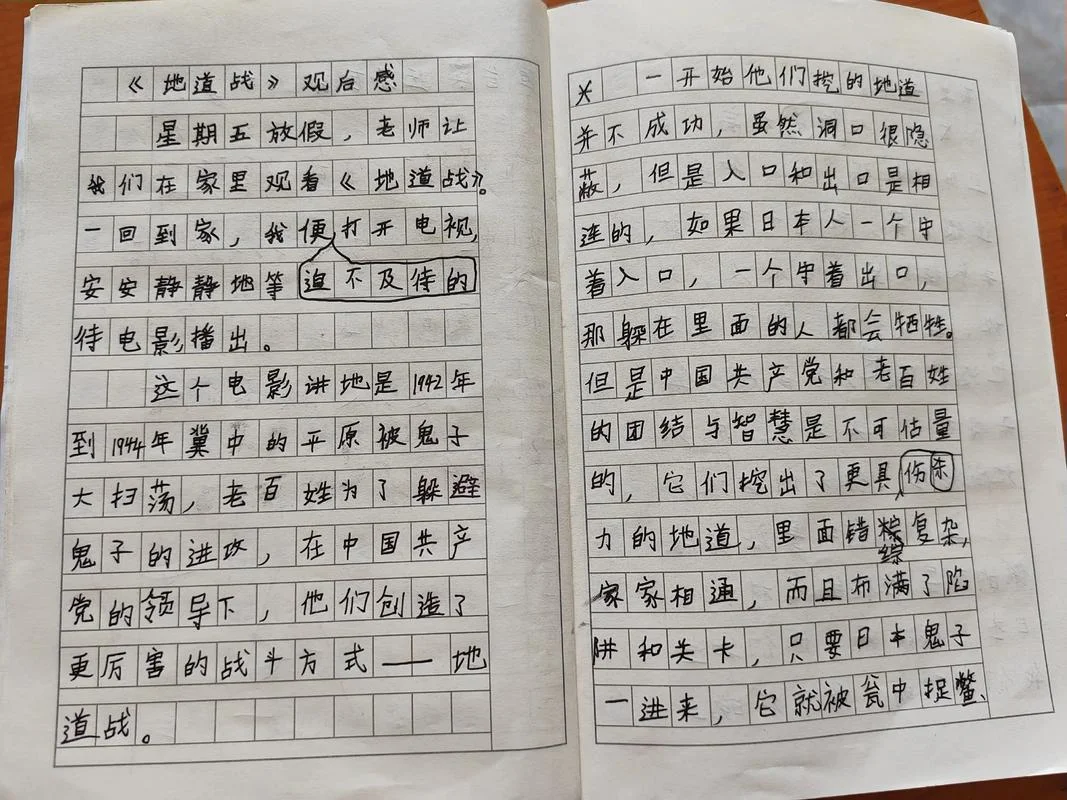 《地道战》观后感
星期五放假，老师让
我们在家里观看《地道战》。
一回到家，我便打开电视，
安安静静地等迫不及待的
待电影播出。
这个电影讲地是1942年
到1944年冀中的平原被鬼子
大扫荡，老百姓为了躲避
鬼子的进攻，在中国共产
党的领导下，他们创造了
更厉害的战斗方式——地
道战。
一开始他们挖的地道
并不成功，虽然洞口很隐
蔽，但是入口和出口是相
连的，如果日本人一个守
着入口，一个守着出口，
那躲在里面的人都会牺牲。
但是中国共产党和老百姓
的团结与智慧是不可估量
的，它们挖出了更具伤杀
力的地道，里面错粽复杂，
综
家家相通，而且布满了陷
阱和关卡，只要日本鬼子
一进来，它就被瓮中捉鳖、